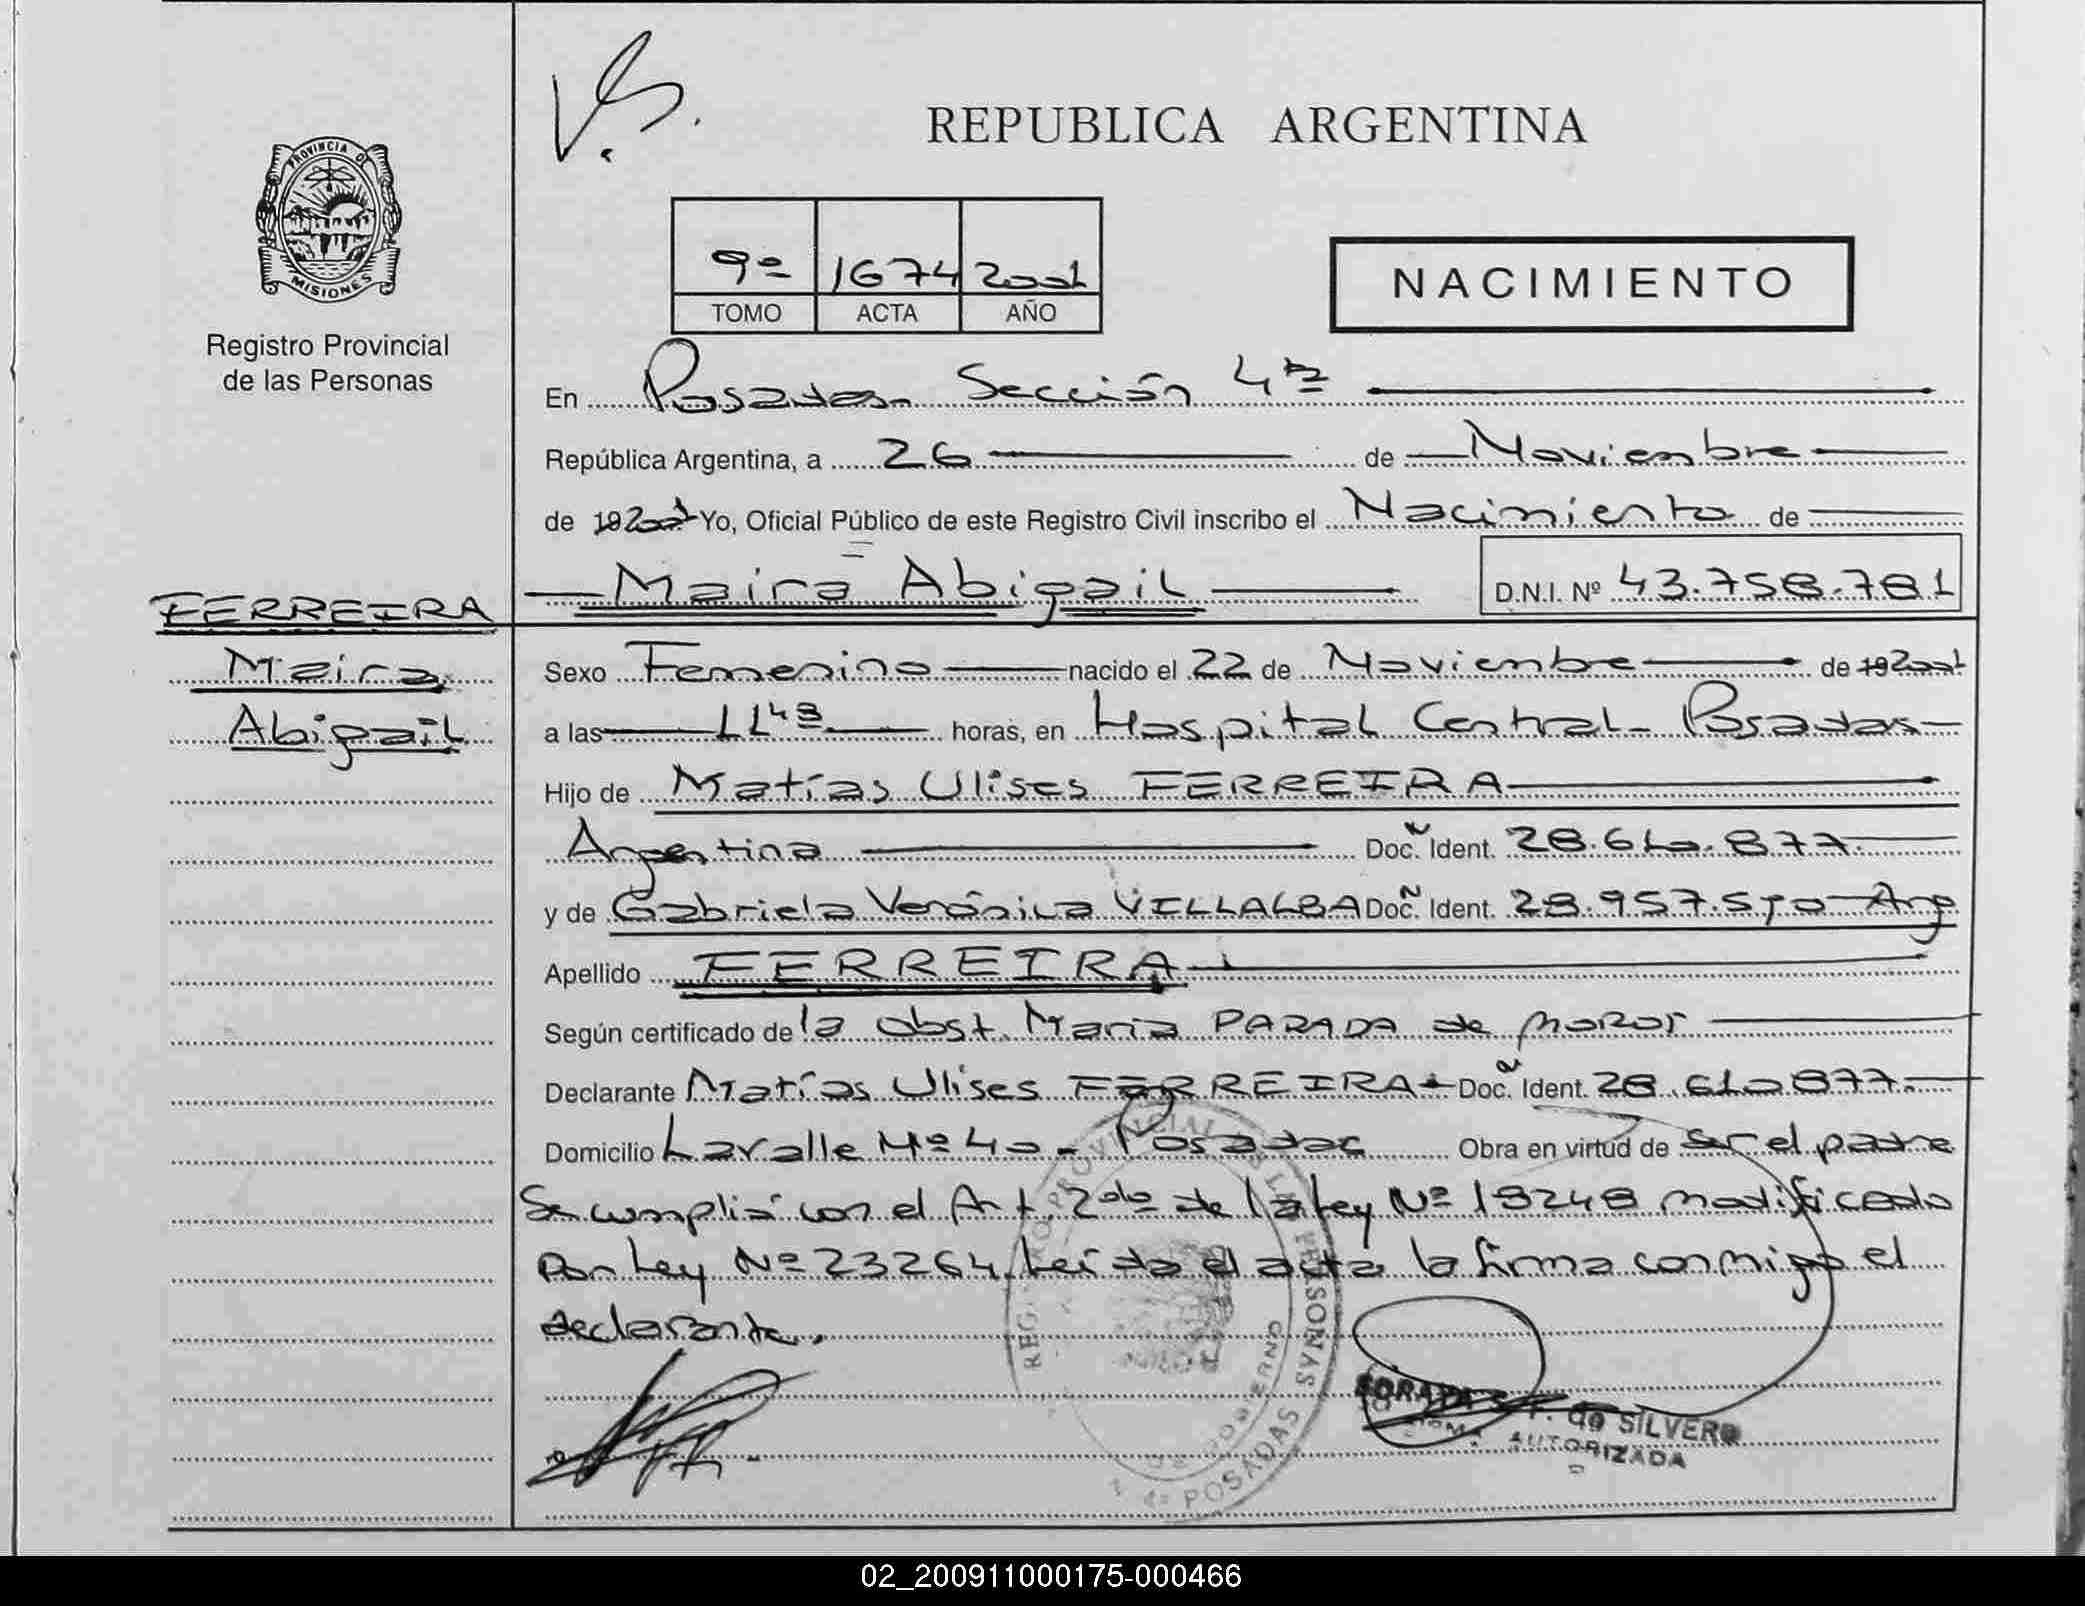 V.S.
REPUBLICA ARGENTINA
PROVINCIA D
MISIONES
Registro Provincial
de las Personas
9º 1674 2001
TOMO ACTA AÑO
NACIMIENTO
En Posadas Sección 4ta
República Argentina, a 26 de Noviembre
de 192001 Yo, Oficial Público de este Registro Civil inscribo el Nacimiento de
Maira Abigail D.N.I. Nº 43.758.781
FERREIRA
Maira
Abigail
Sexo Femenino nacido el 22 de Noviembre de 192001
a las 1143 horas, en Hospital Central - Posadas
Hijo de Matías Ulises FERREIRA
Argentina Doc. Ident. 28.610.877
y de Gabriela Verónica VILLALBA Doc. Ident. 28.957.570 Arg
Apellido FERREIRA
Según certificado de la obst. Maria PARADA de
Declarante Matías Ulises FERREIRA Doc. Ident. 28.610.877
Domicilio Lavalle Nº 40 - Posadas Obra en virtud de ser el padre
Se cumplió con el Art. 2do de la Ley Nº 18248 modificado
por Ley Nº 23264. Leída el acta la firma conmigo el
declarante.
de SILVERO
FIRMA AUTORIZADA
POSADAS
02_200911000175-000466